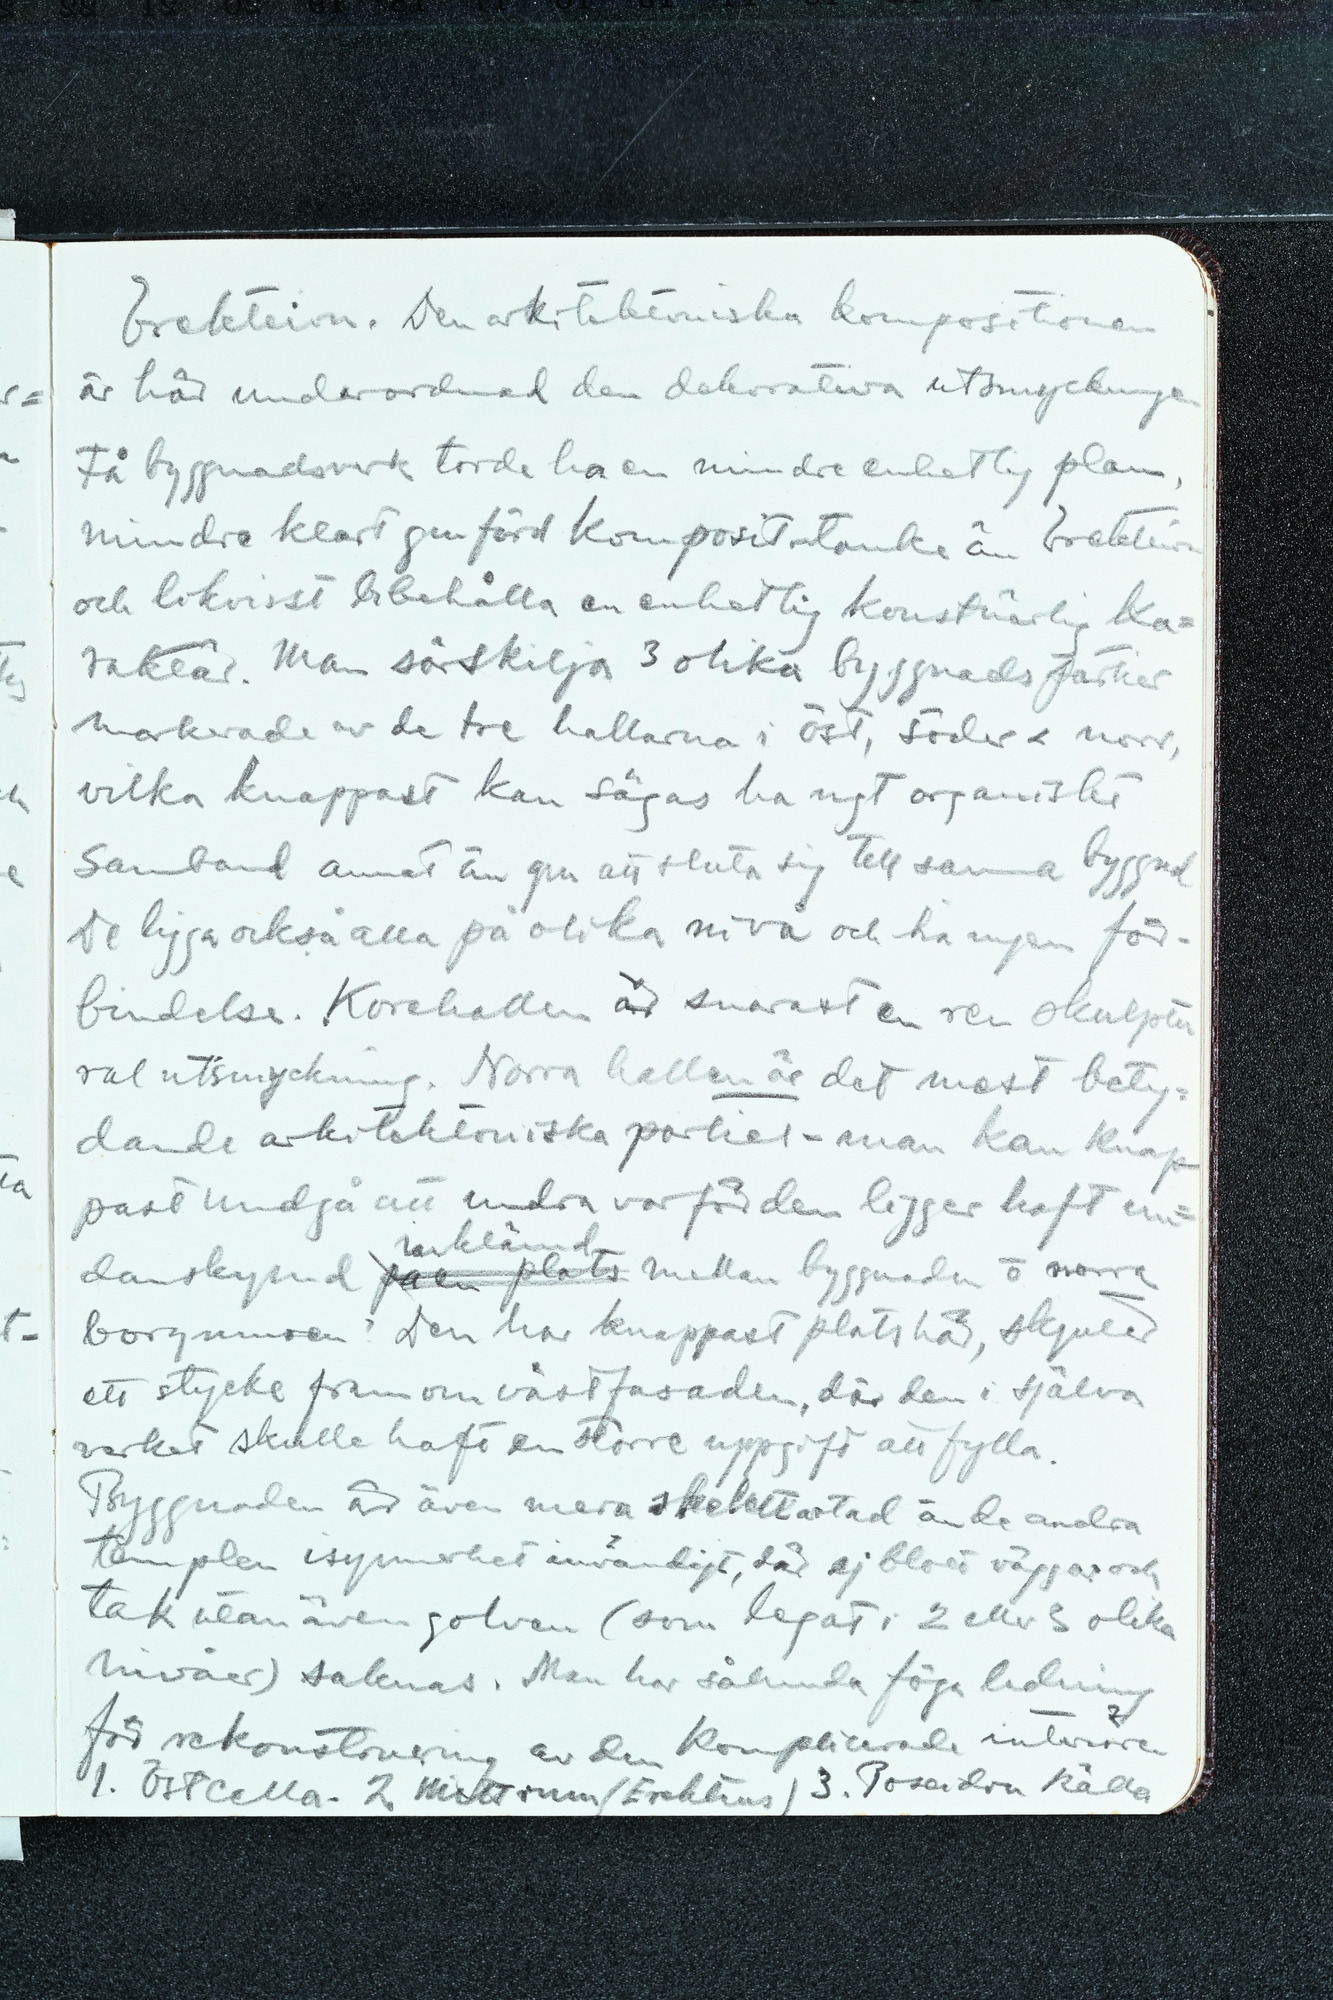 Erekteion. Den arkitektoniska kompositionen
är här underordnad den dekorativa utsmyckningen
Få byggnadsverk torde ha en mindre enhetlig plan,
mindre klart gnförd komposit.tanke än Erekteion
och likvisst bibehålla en enhetlig konstnärlig ka=
raktär. Man särskilja 3 olika byggnadspartier
markerade av de tre hallarna i öst, söder & norr,
vilka knappast kan sägas ha ngt organiskt
samband annat än gn att sluta sig till samma byggnd
De ligga också alla på olika nivå och ha ingen för-
bindelse. Korehallen är snarast en ren skulptu
ral utsmyckning. Norra hallen är det mest bety=
dande arkitektoniska partiet - man kan knap
past undgå att undra varför den ligger haft un=
danskymd på en plats inklämd mellan byggnaden o norra
borgmuren? Den har knappast plats här, skjuter
ett stycke fram om västfasaden, där den i själva
verket skulle haft en större uppgift att fylla.
Byggnaden är även mera skelettartad än de andra
templen isynnerhet invändigt, där ej blott väggar och
tak utan även golven (som legat i 2 eller 3 olika
nivåer) saknas. Man har sålunda föga ledning
för rekonstruering av den komplicerade interiören
1. Östcella. 2. Mittrum (Erekteus) 3. Poseidon källa